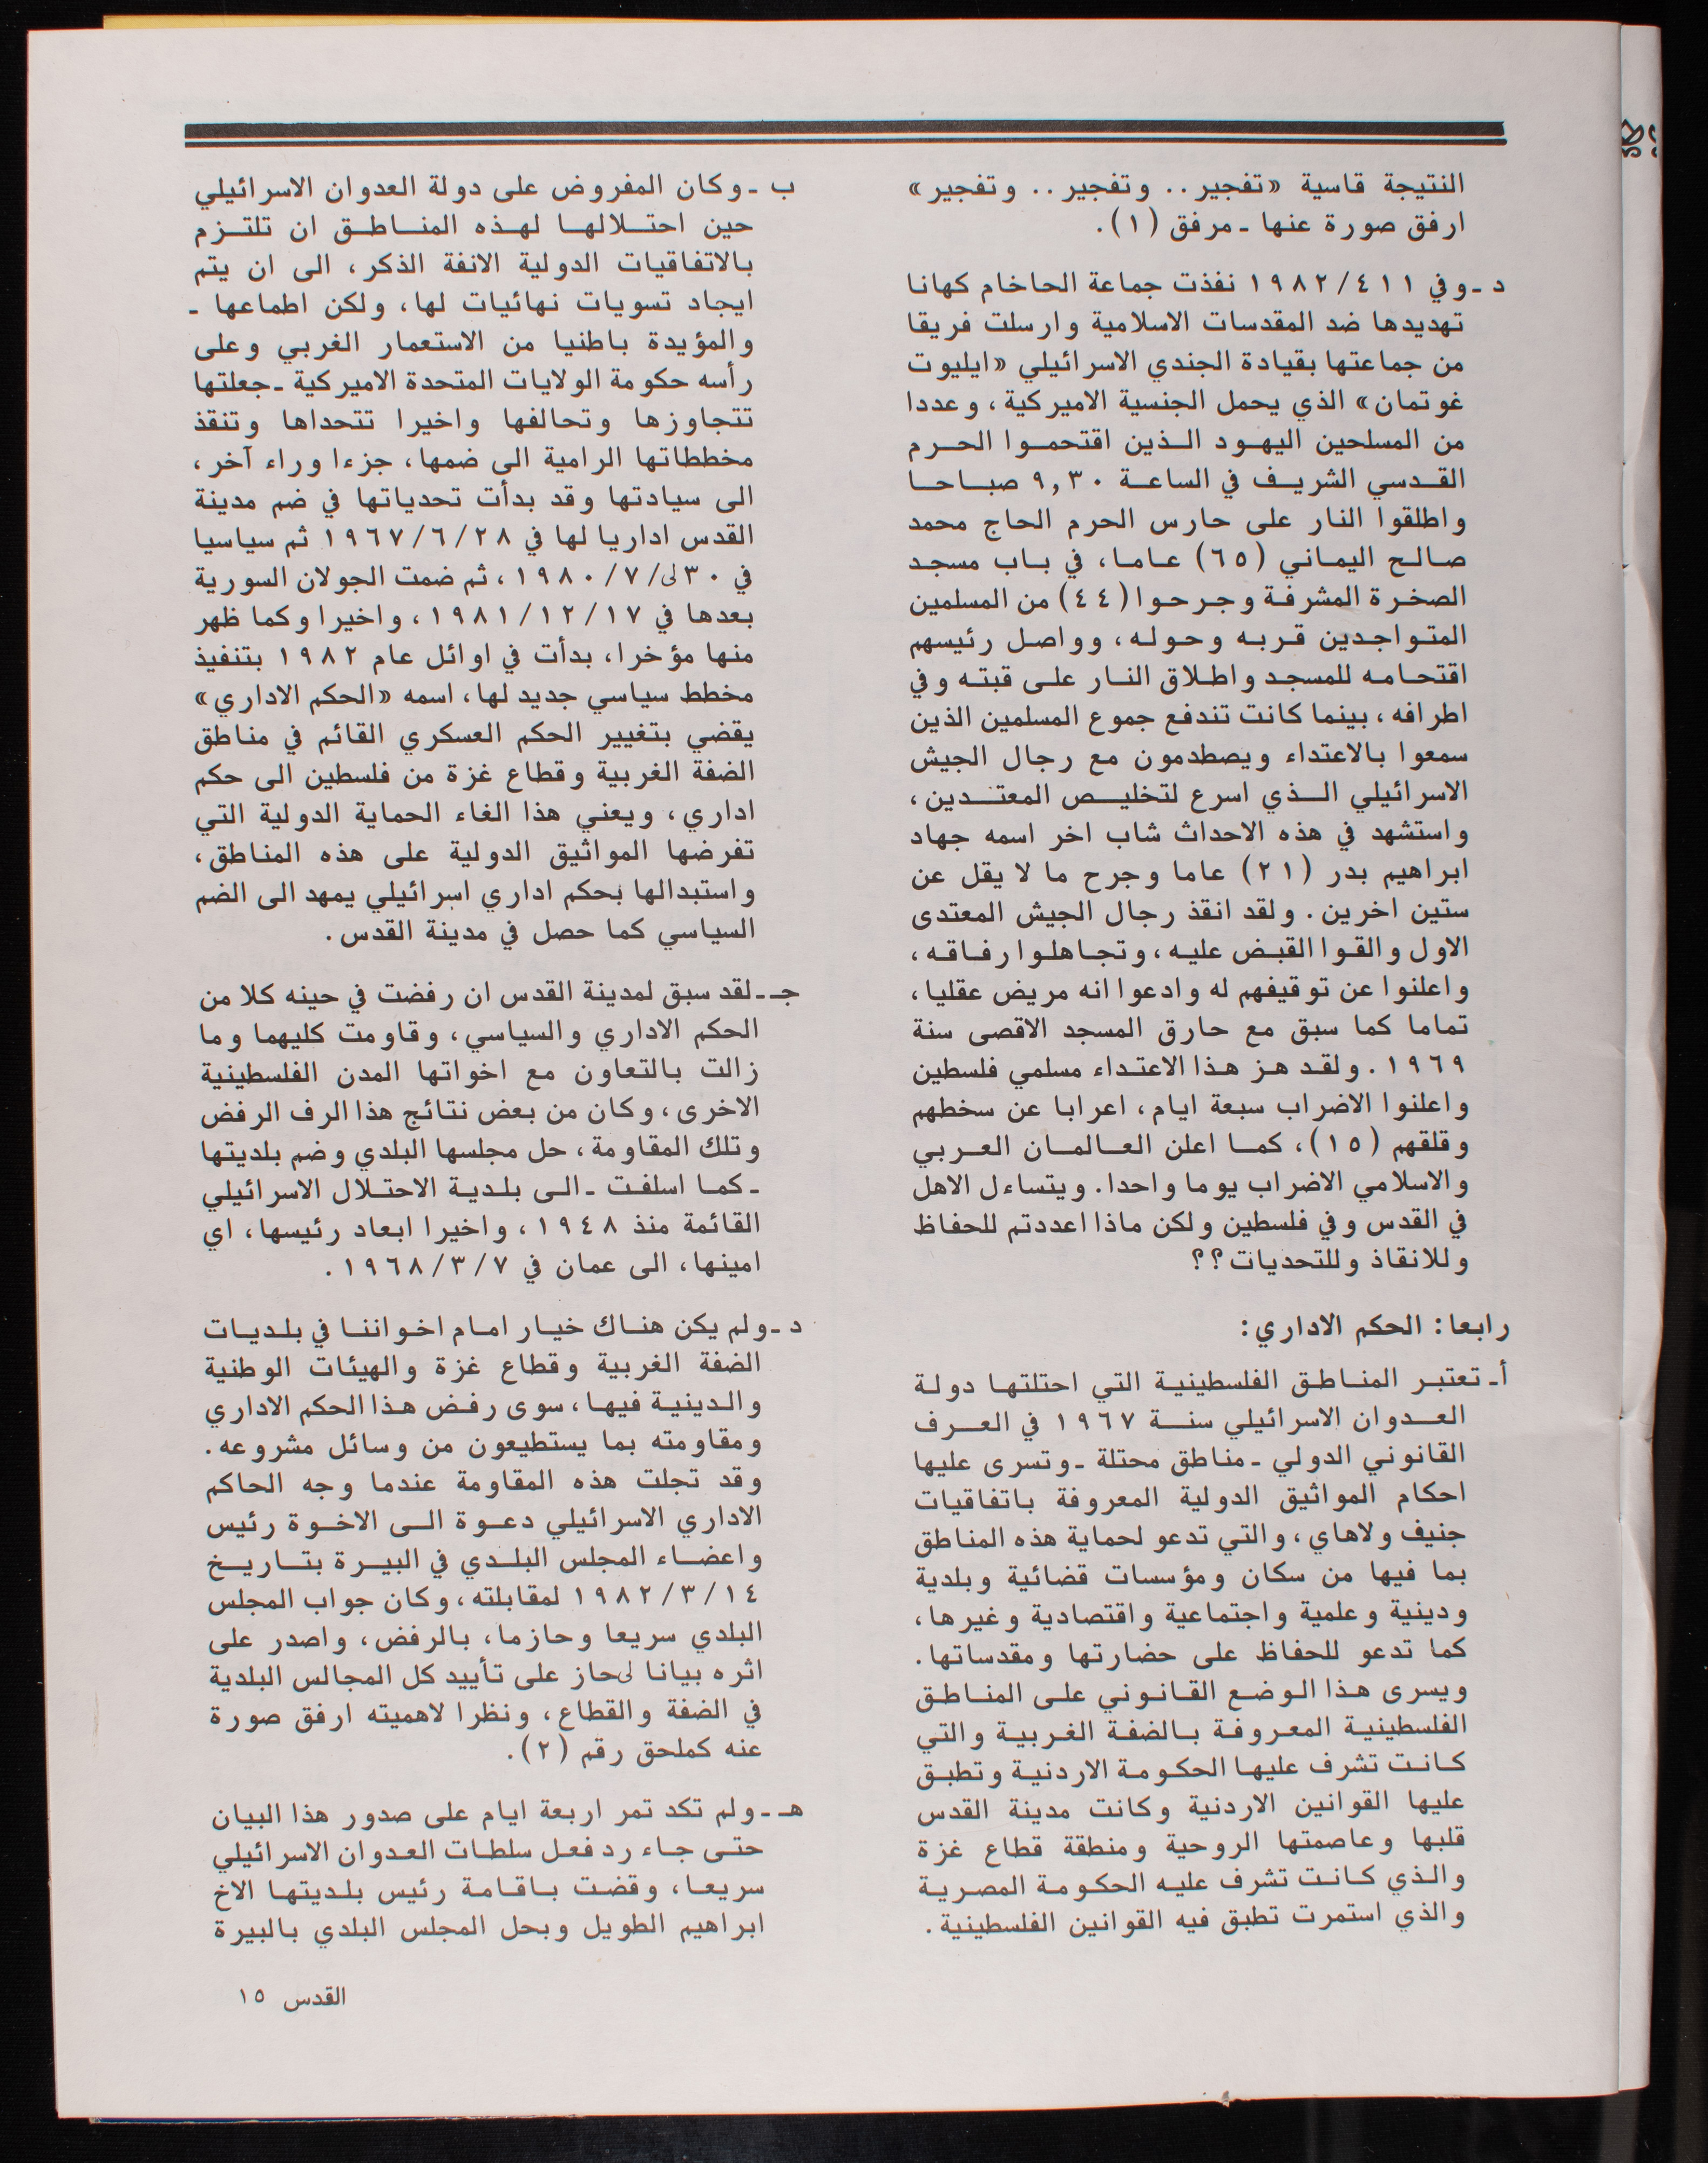 النتيجة قاسية «تفجير.. وتفجير.. وتفجير»
ارفق صورة عنها ـ مرفق (١).
د ـ وفي ٤١١/ ١٩٨٢ نفذت جماعة الحاخام كهانا
تهديدها ضد المقدسات الاسلامية وارسلت فريقا
من جماعتها بقيادة الجندي الاسرائيلي «ايليوت
غوتمان» الذي يحمل الجنسية الاميركية، وعددا
من المسلحين اليهود الذين اقتحموا الحرم
القدسي الشريف في الساعة ٩,٣٠ صباحا
واطلقوا النار على حارس الحرم الحاج محمد
صالح اليماني (٦٥) عاما، في باب مسجد
الصخرة المشرفة وجرحوا (٤٤) من المسلمين
المتواجدين قربه وحوله، وواصل رئيسهم
اقتحامه للمسجد واطلاق النار على قبته وفي
اطرافه، بينما كانت تندفع جموع المسلمين الذين
سمعوا بالاعتداء ويصطدمون مع رجال الجيش
الاسرائيلي الذي اسرع لتخليص المعتدين،
واستشهد في هذه الاحداث شاب اخر اسمه جهاد
ابراهيم بدر (٢١) عاما وجرح ما لا يقل عن
ستين اخرين. ولقد انقذ رجال الجيش المعتدى
الاول والقوا القبض عليه، وتجاهلوا رفاقه،
واعلنوا عن توقيفهم له وادعوا انه مريض عقليا،
تماما كما سبق مع حارق المسجد الاقصى سنة
١٩٦٩. ولقد هز هذا الاعتداء مسلمي فلسطين
واعلنوا الاضراب سبعة ايام، اعرابا عن سخطهم
وقلقهم (١٥)، كما اعلن العالمان العربي
والاسلامي الاضراب يوما واحدا. ويتساءل الاهل
في القدس وفي فلسطين ولكن ماذا اعددتم للحفاظ
وللانقاذ وللتحديات؟؟
رابعا: الحكم الاداري:
أ ـ تعتبر المناطق الفلسطينية التي احتلتها دولة
العدوان الاسرائيلي سنة ١٩٦٧ في العرف
القانوني الدولي ـ مناطق محتلة ـ وتسرى عليها
احكام المواثيق الدولية المعروفة باتفاقيات
جنيف ولاهاي، والتي تدعو لحماية هذه المناطق
بما فيها من سكان ومؤسسات قضائية وبلدية
ودينية وعلمية واجتماعية واقتصادية وغيرها،
كما تدعو للحفاظ على حضارتها ومقدساتها.
ويسرى هذا الوضع القانوني على المناطق
الفلسطينية المعروفة بالضفة الغربية والتي
كانت تشرف عليها الحكومة الاردنية وتطبق
عليها القوانين الاردنية وكانت مدينة القدس
قلبها وعاصمتها الروحية ومنطقة قطاع غزة
والذي كانت تشرف عليه الحكومة المصرية
والذي استمرت تطبق فيه القوانين الفلسطينية.
ب ـ وكان المفروض على دولة العدوان الاسرائيلي
حين احتلالها لهذه المناطق ان تلتزم
بالاتفاقيات الدولية الانفة الذكر، الى ان يتم
ايجاد تسويات نهائيات لها، ولكن اطماعها ـ
والمؤيدة باطنيا من الاستعمار الغربي وعلى
رأسه حكومة الولايات المتحدة الاميركية ـ جعلتها
تتجاوزها وتحالفها واخيرا تتحداها وتنقذ
مخططاتها الرامية الى ضمها، جزءا وراء آخر،
الى سيادتها وقد بدأت تحدياتها في ضم مدينة
القدس اداريا لها في ٢٨/ ٦/ ١٩٦٧ ثم سياسيا
في ٣٠لى/ ٧/ ١٩٨٠، ثم ضمت الجولان السورية
بعدها في ١٧/ ١٢/ ١٩٨١، واخيرا وكما ظهر
منها مؤخرا، بدأت في اوائل عام ١٩٨٢ بتنفيذ
مخطط سياسي جديد لها، اسمه «الحكم الاداري»
يقضي بتغيير الحكم العسكري القائم في مناطق
الضفة الغربية وقطاع غزة من فلسطين الى حكم
اداري، ويعني هذا الغاء الحماية الدولية التي
تفرضها المواثيق الدولية على هذه المناطق،
واستبدالها بحكم اداري اسرائيلي يمهد الى الضم
السياسي كما حصل في مدينة القدس.
جـ ـ لقد سبق لمدينة القدس ان رفضت في حينه كلا من
الحكم الاداري والسياسي، وقاومت كليهما وما
زالت بالتعاون مع اخواتها المدن الفلسطينية
الاخرى، وكان من بعض نتائج هذا الرف الرفض
وتلك المقاومة، حل مجلسها البلدي وضم بلديتها
ـ كما اسلفت ـ الى بلدية الاحتلال الاسرائيلي
القائمة منذ ١٩٤٨، واخيرا ابعاد رئيسها، اي
امينها، الى عمان في ٧/ ٣/ ١٩٦٨.
د ـ ولم يكن هناك خيار امام اخواننا في بلديات
الضفة الغربية وقطاع غزة والهيئات الوطنية
والدينية فيها، سوى رفض هذا الحكم الاداري
ومقاومته بما يستطيعون من وسائل مشروعه.
وقد تجلت هذه المقاومة عندما وجه الحاكم
الاداري الاسرائيلي دعوة الى الاخوة رئيس
واعضاء المجلس البلدي في البيرة بتاريخ
١٤/ ٣/ ١٩٨٢ لمقابلته، وكان جواب المجلس
البلدي سريعا وحازما، بالرفض، واصدر على
اثره بيانا لىحاز على تأييد كل المجالس البلدية
في الضفة والقطاع، ونظرا لاهميته ارفق صورة
عنه كملحق رقم (٢).
هـ ـ ولم تكد تمر اربعة ايام على صدور هذا البيان
حتى جاء رد فعل سلطات العدوان الاسرائيلي
سريعا، وقضت باقامة رئيس بلديتها الاخ
ابراهيم الطويل وبحل المجلس البلدي بالبيرة
القدس ١٥